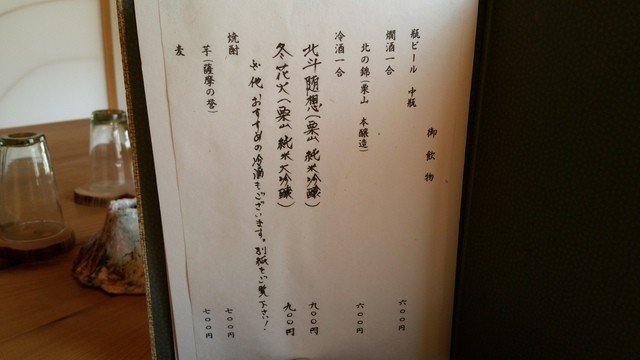 御飲物
瓶ビール 中瓶 六〇〇円
燗酒一合
北の錦(栗山 本醸造) 六〇〇円
冷酒一合
北斗随想(栗山 純米吟醸) 九〇〇円
冬花火(栗山 純米大吟醸) 九〇〇円
※他、おすすめの冷酒もございます。別紙をご覧下さい!
焼酎
芋(薩摩の誉) 七〇〇円
麦 七〇〇円